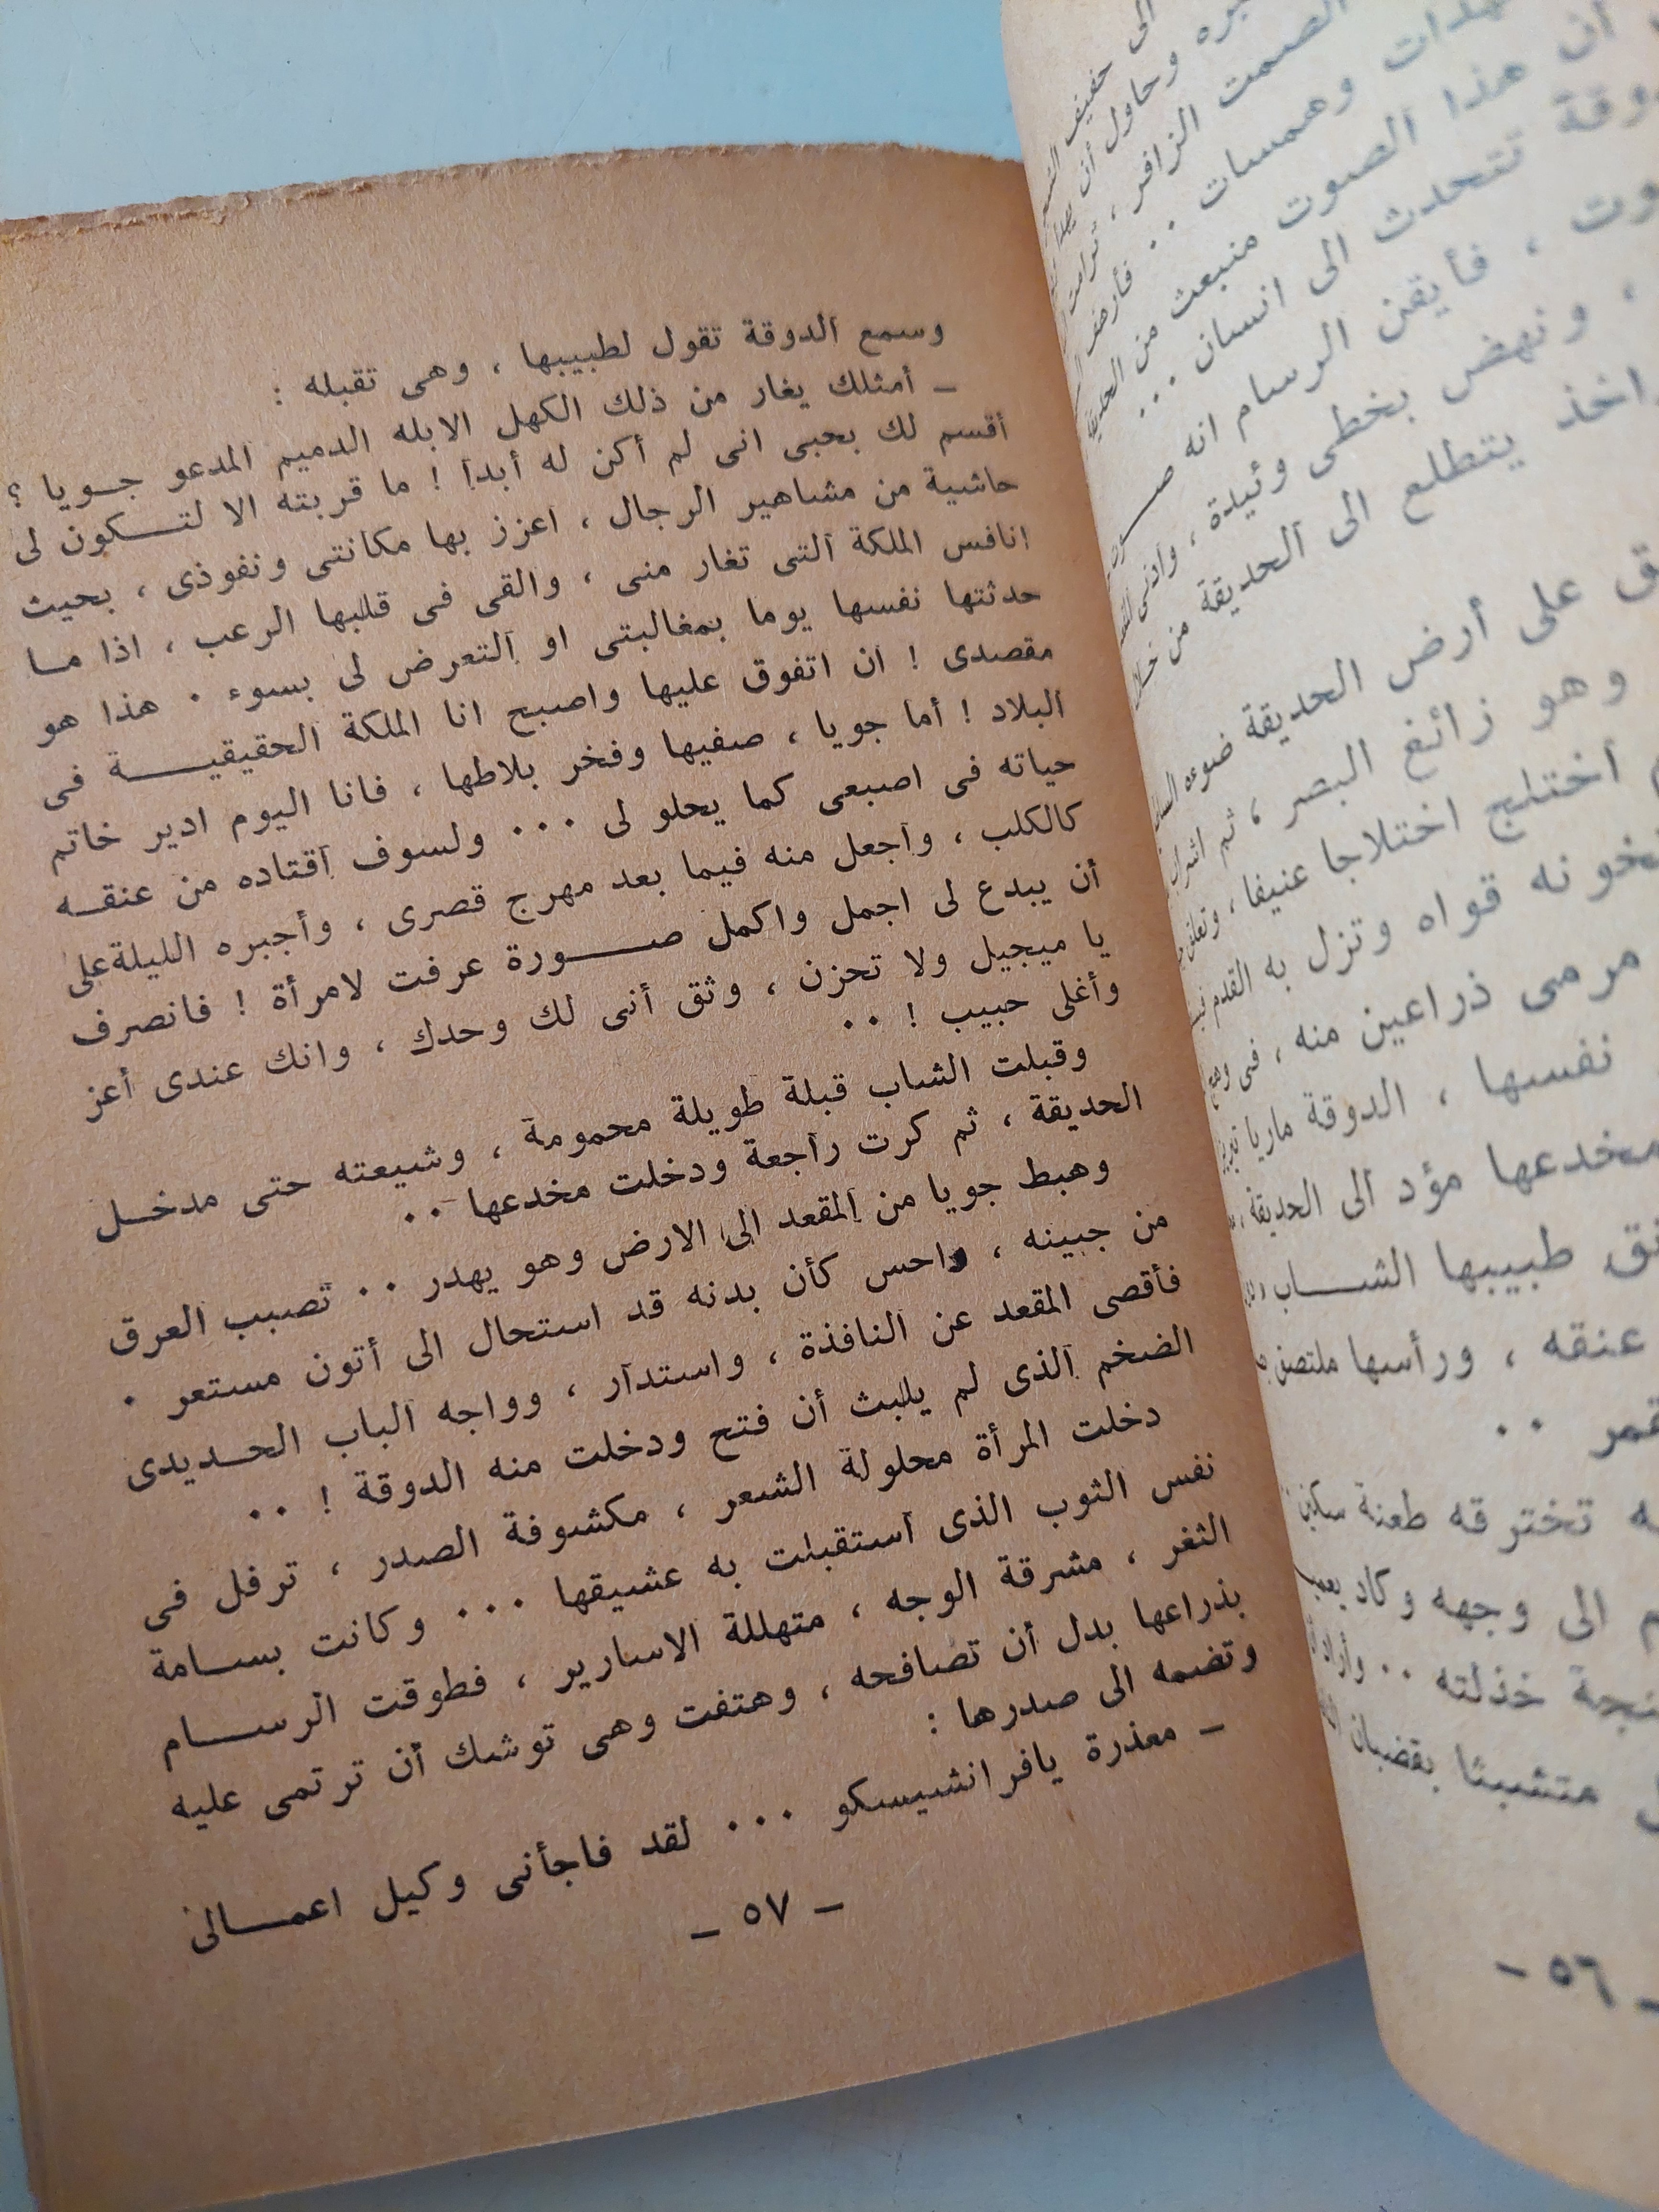 الى حفيف
وحاول أن
الصمت الزافر ،
وهمسات ..
أن هذا الصوت منبعث من الحديقة
تتحدث الى انسان ...
، فأيقن الرسام انه
، ونهض بخطى وئيدة ،
يتطلع الى الحديقة من خلال
على أرض الحديقة ضوءه
وهو زائغ البصر ، ثم
اختلج اختلاجا عنيفا ،
قواه وتزل به القدم
مرمى ذراعين منه ، فى
نفسها ، الدوقة ماريا
مخدعها مؤد الى الحديقة ،
طبيبها الشاب
عنقه ، ورأسها ملتصق
..
تخترقه طعنة سكين
الى وجهه وكاد
خذلته .. وأراد
متشبثا بقضبان
ـ ٥٦ ـ
وسمع الدوقة تقول لطبيبها ، وهى تقبله :
ـ أمثلك يغار من ذلك الكهل الابله الدميم المدعو جويا ؟
أقسم لك بحبى انى لم أكن له أبدا ! ما قربته الا لتكون لى
حاشية من مشاهير الرجال ، اعزز بها مكانتى ونفوذى ، بحيث
انافس الملكة التى تغار منى ، والقى فى قلبها الرعب ، اذا ما
حدثتها نفسها يوما بمغالبتى او التعرض لى بسوء . هذا هو
مقصدى ! ان اتفوق عليها واصبح انا الملكة الحقيقية فى
البلاد ! أما جويا ، صفيها وفخر بلاطها ، فانا اليوم ادير خاتم
حياته فى اصبعى كما يحلو لى ... ولسوف اقتاده من عنقه
كالكلب ، واجعل منه فيما بعد مهرج قصرى ، وأجبره الليلة على
أن يبدع لى اجمل واكمل صورة عرفت لامرأة ! فانصرف
يا ميجيل ولا تحزن ، وثق أنى لك وحدك ، وانك عندى أعز
وأغلى حبيب ! ..
وقبلت الشاب قبلة طويلة محمومة ، وشيعته حتى مدخل
الحديقة ، ثم كرت راجعة ودخلت مخدعها ..
وهبط جويا من المقعد الى الارض وهو يهدر .. تصبب العرق
من جبينه ، واحس كأن بدنه قد استحال الى أتون مستعر .
فأقصى المقعد عن النافذة ، واستدار ، وواجه الباب الحديدى
الضخم الذى لم يلبث أن فتح ودخلت منه الدوقة ! ..
دخلت المرأة محلولة الشعر ، مكشوفة الصدر ، ترفل فى
نفس الثوب الذى استقبلت به عشيقها ... وكانت بسامة
الثغر ، مشرقة الوجه ، متهللة الاسارير ، فطوقت الرسام
بذراعها بدل أن تصافحه ، وهتفت وهى توشك أن ترتمى عليه
وتضمه الى صدرها :
ـ معذرة يافرانشيسكو ... لقد فاجأنى وكيل اعمالى
ـ ٥٧ ـ